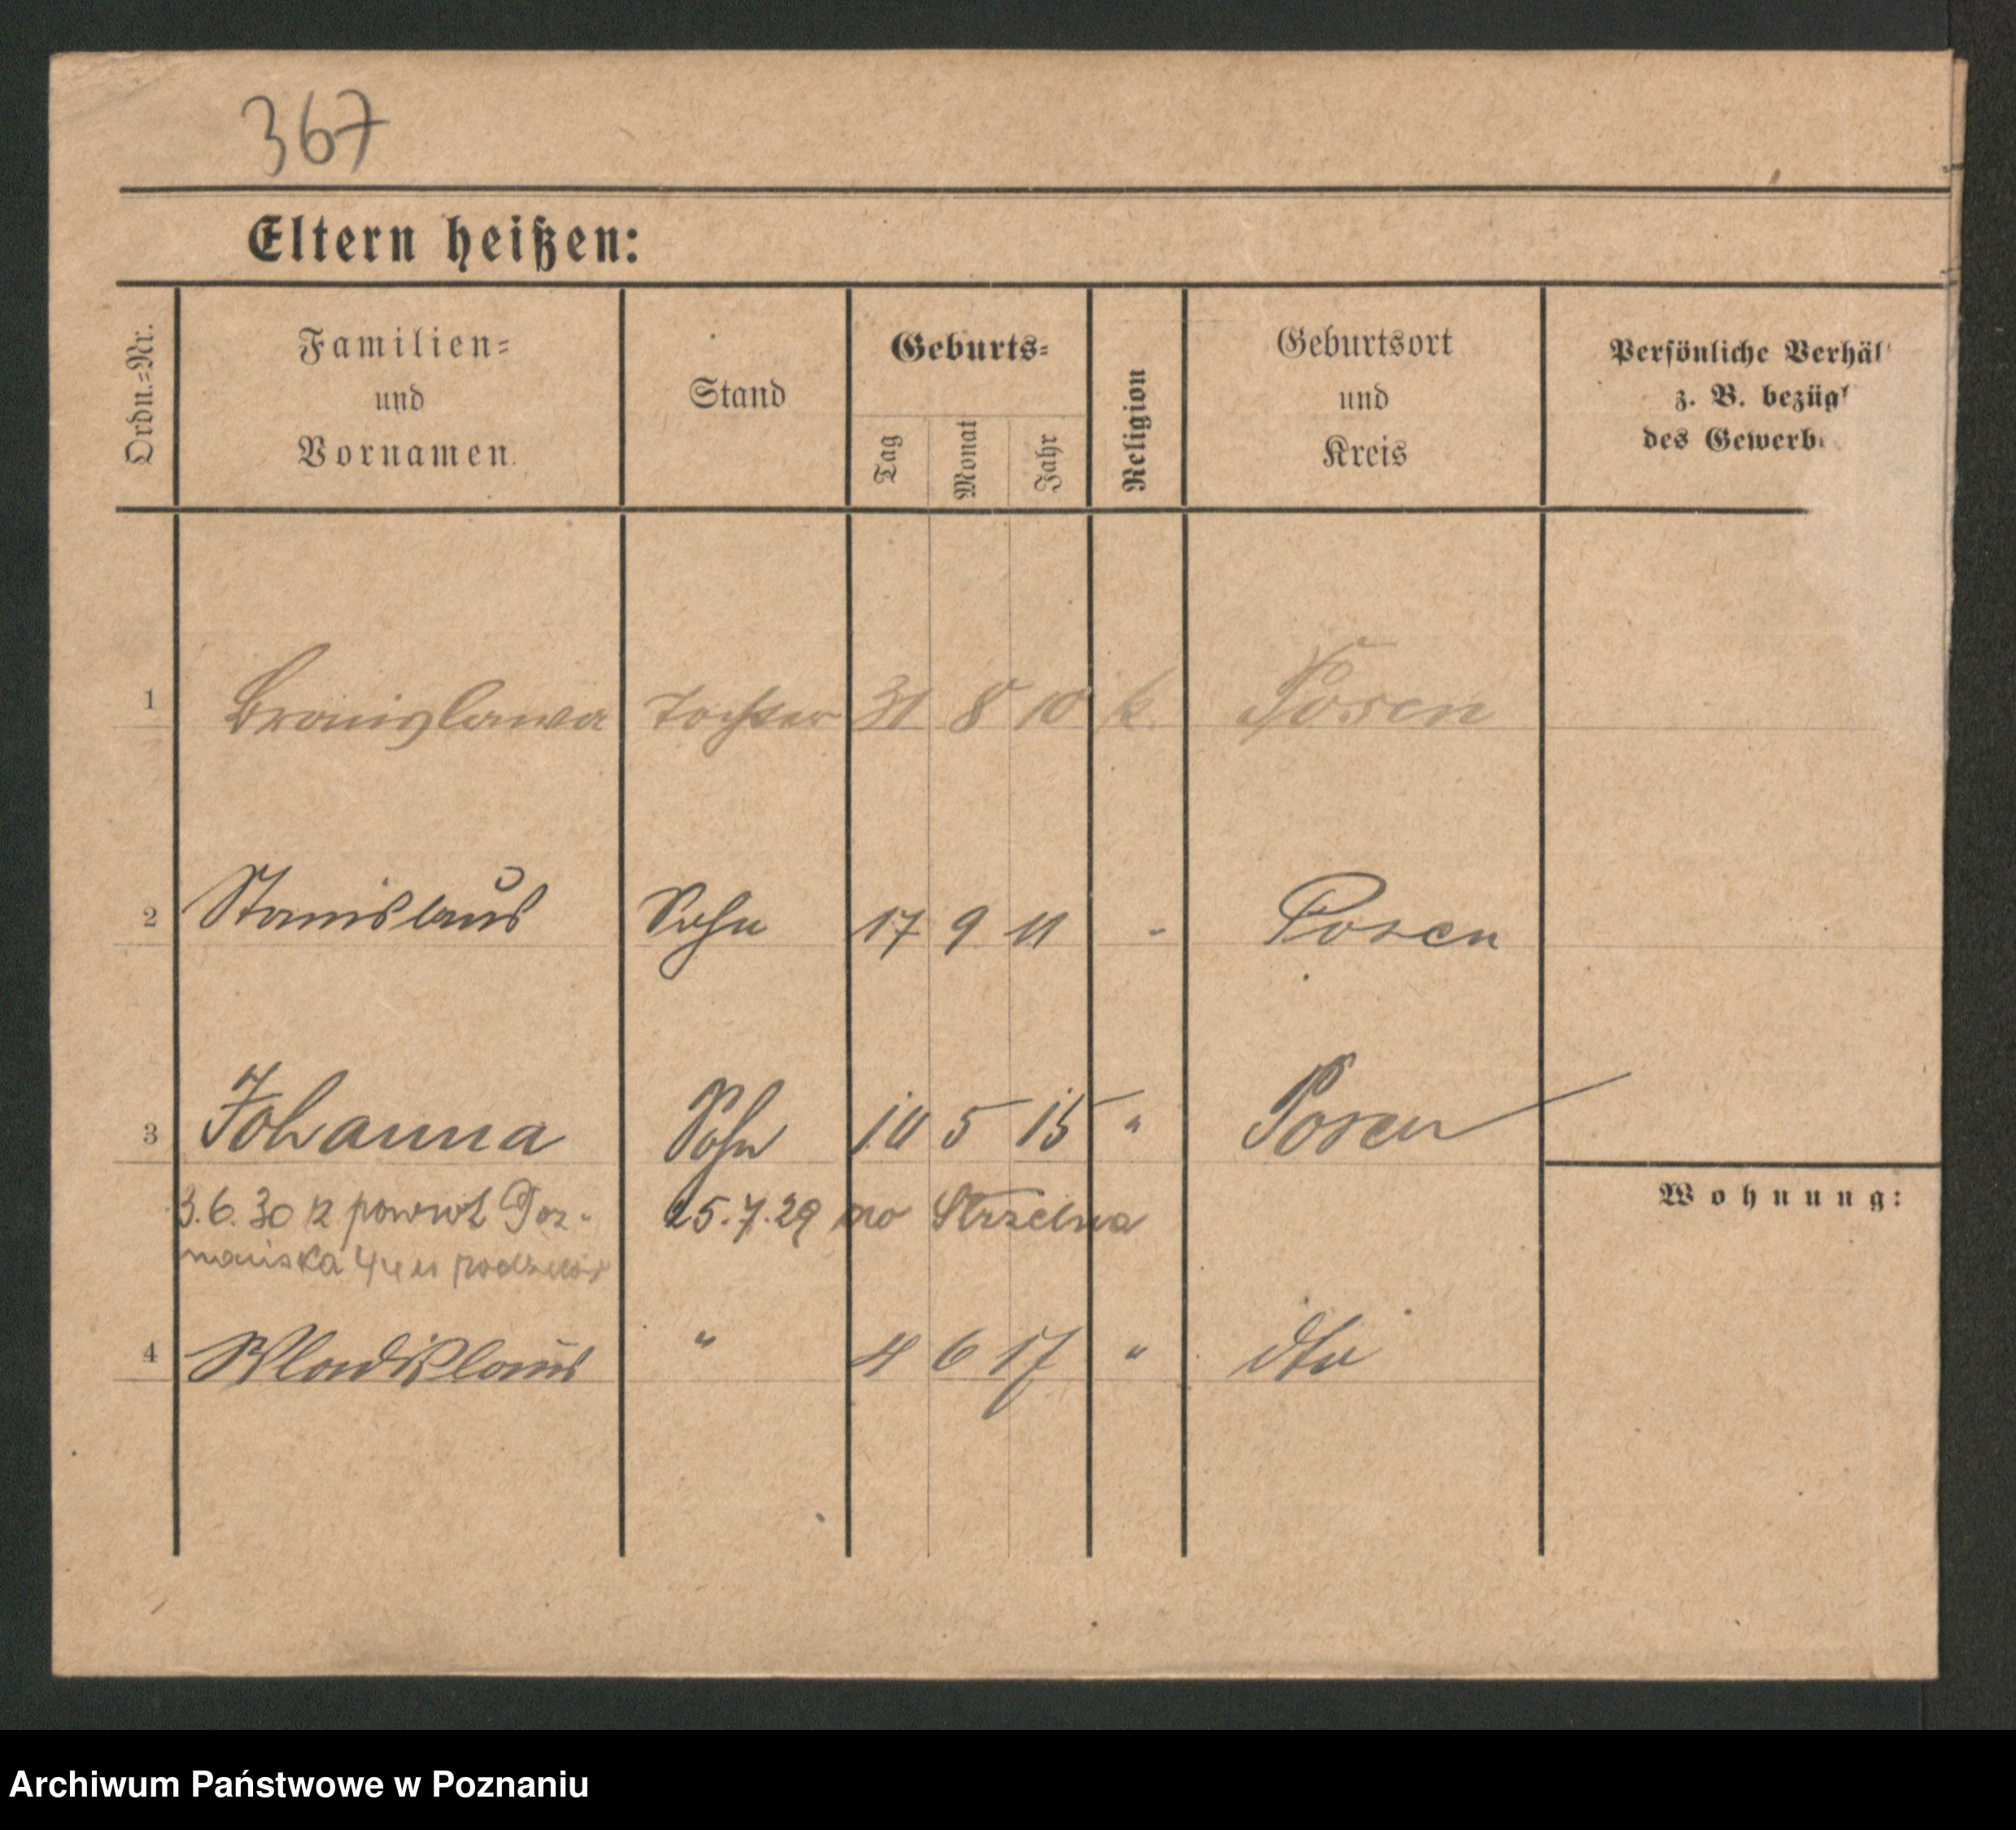 367
Eltern heißen:
Ordn.=Nr.
Familien=
und
Vornamen.
Stand
Geburts=
Tag
Monat
Jahr
Religion
Geburtsort
und
Kreis
Persönliche Verhäl
z. B. bezüg
des Gewerb
1 Bronislawa Tochter 31 8 10 k. Posen
2 Stanislaus Sohn 17 9 11 - Posen
3 Johanna Sohn 10 5 15 " Posen
3.6.30 z powrot Poz- 25.7.29 do Strzelna
nańska 44 u rodziców
Wohnung:
4 Wladislaus " 4 6 17 " dto
Archiwum Państwowe w Poznaniu